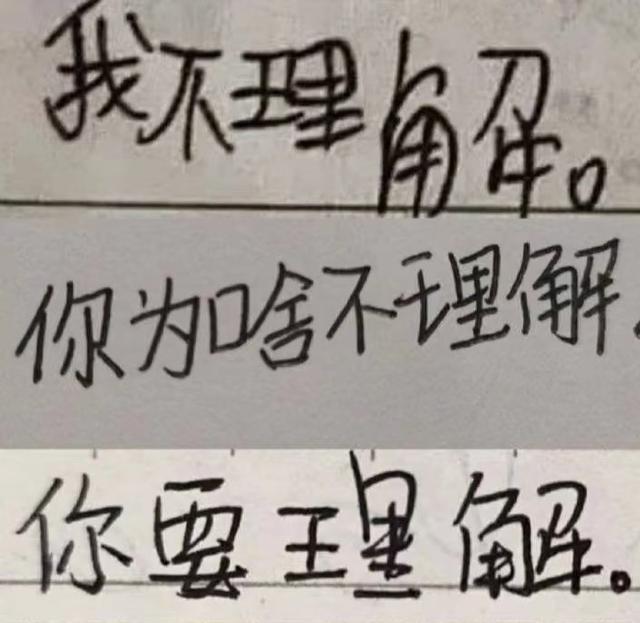 我不理解。
你为啥不理解
你要理解。